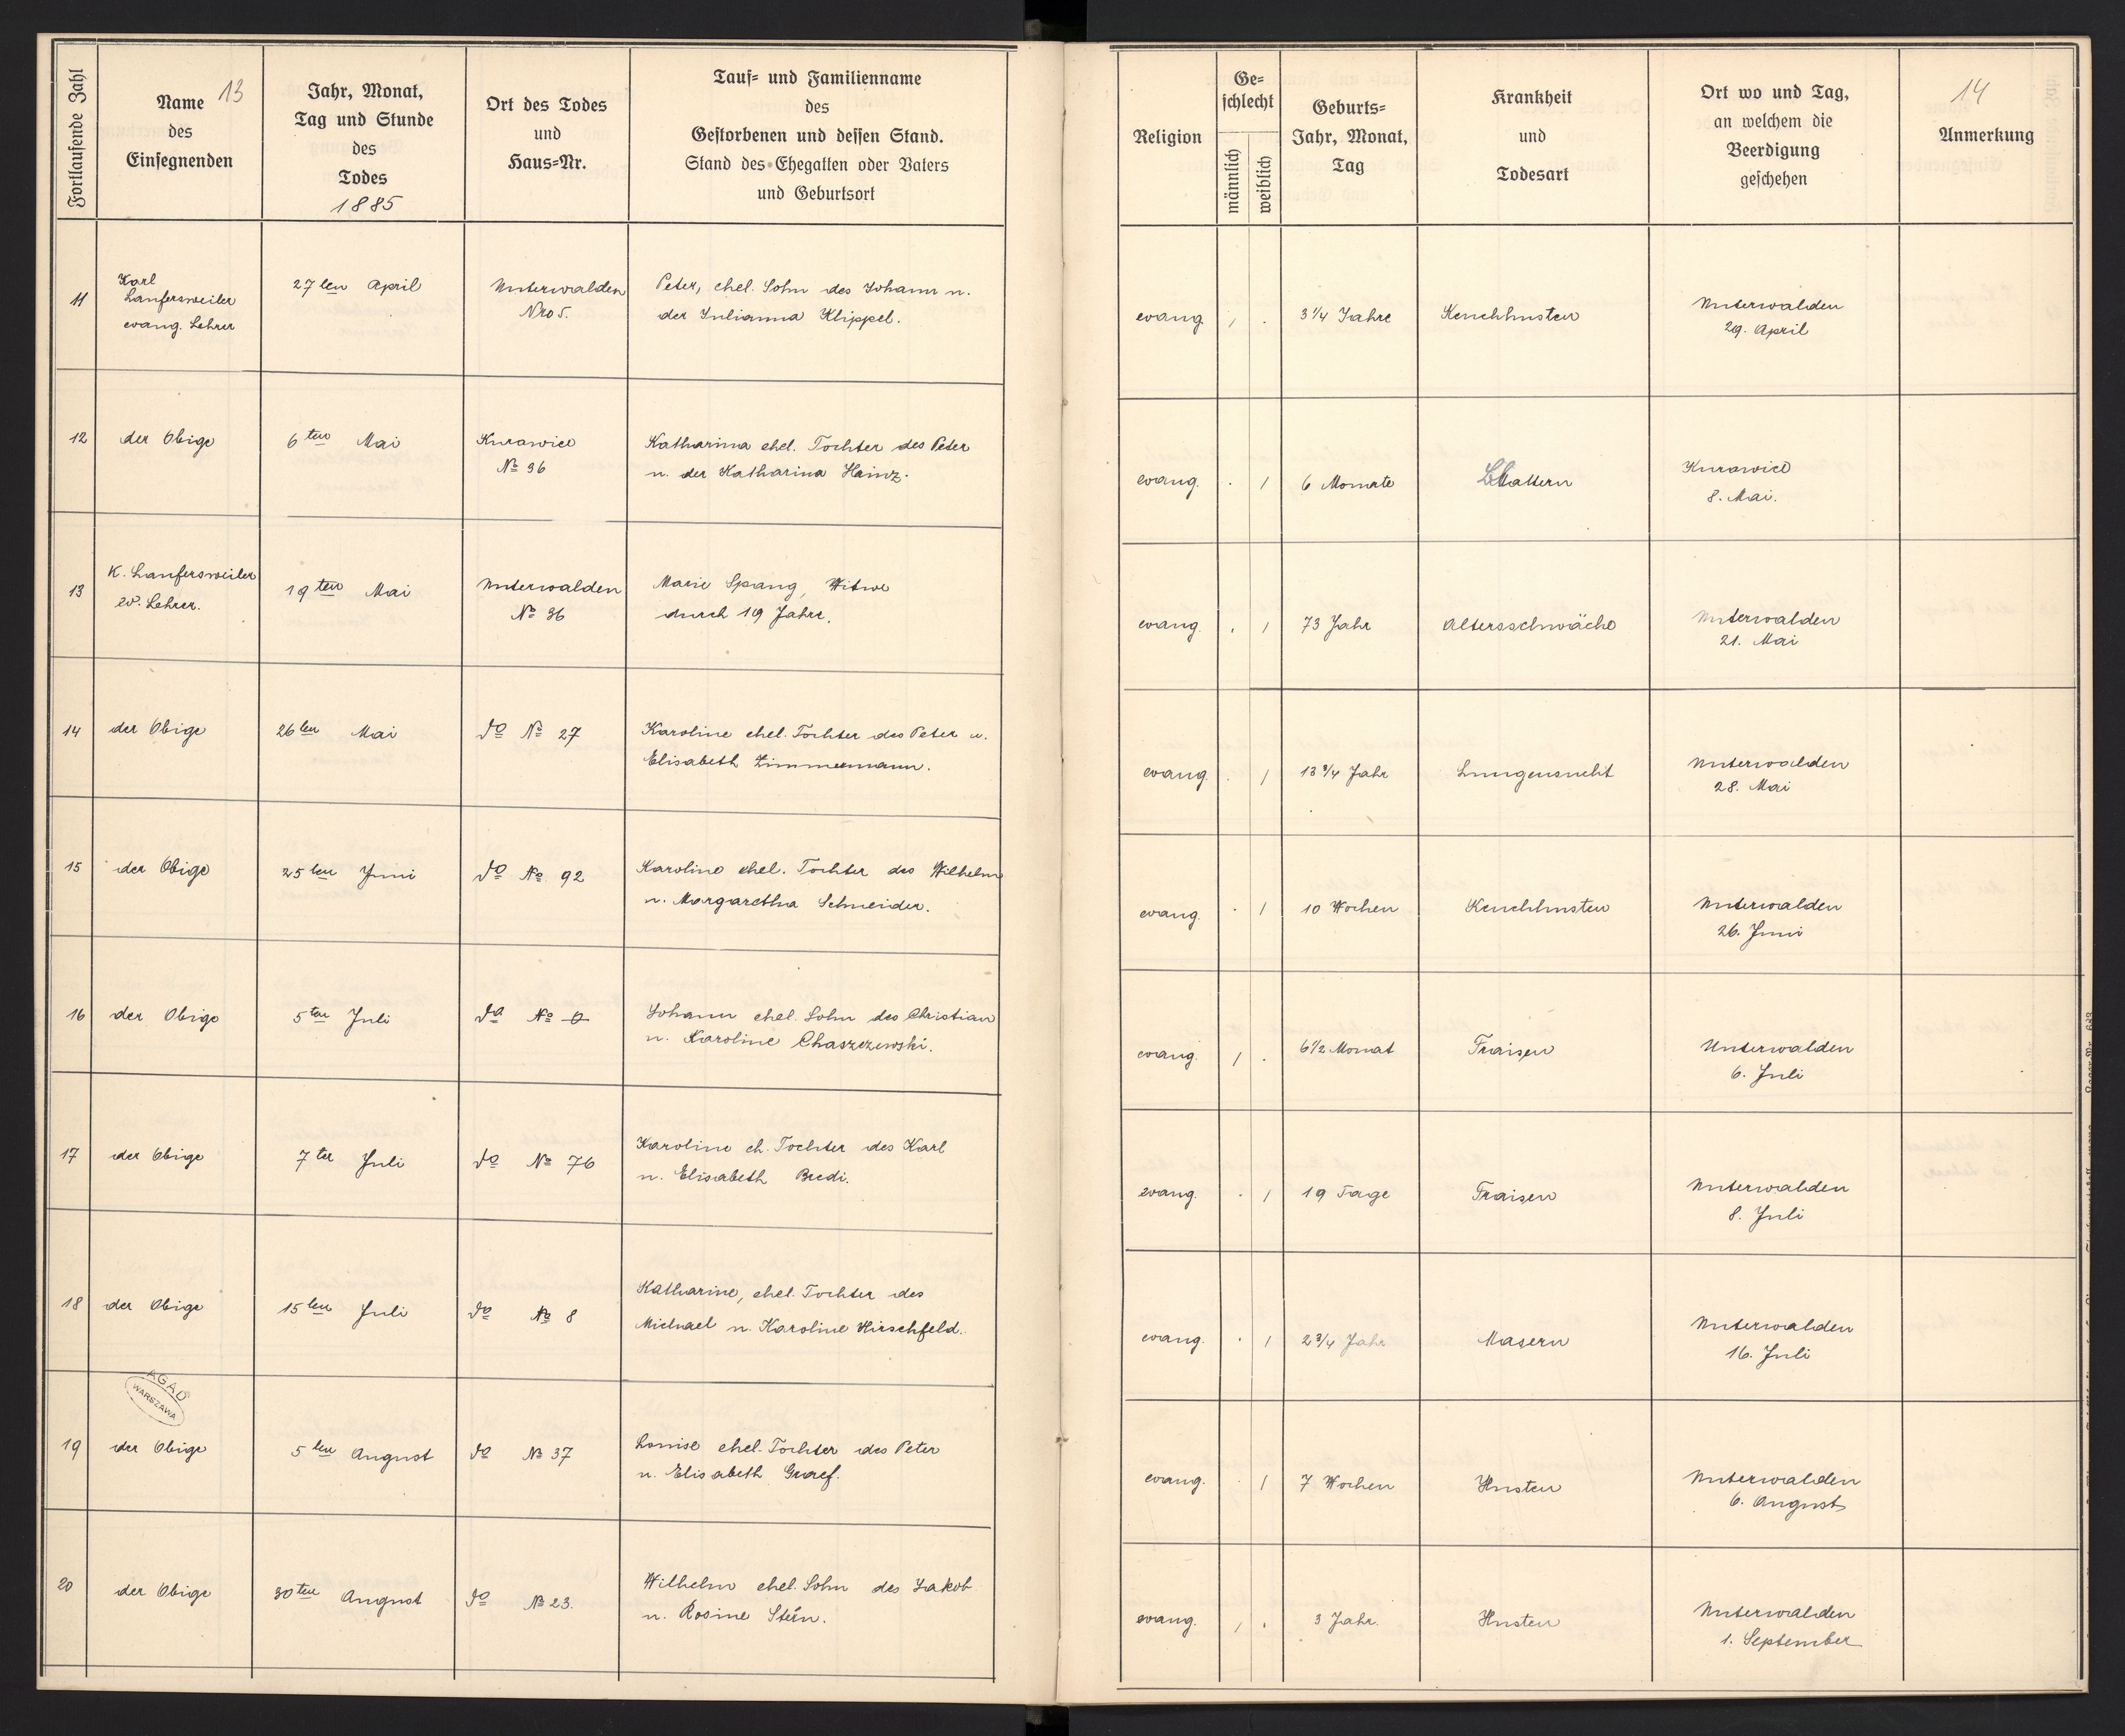 13
Fortlaufende Zahl
Name
des
Einsegnenden
Jahr, Monat,
Tag und Stunde
des
Todes
1885
Ort des Todes
und
Haus=Nr.
Tauf= und Familienname
des
Gestorbenen und dessen Stand.
Stand des Ehegatten oder Vaters
und Geburtsort
Religion
Ge=
schlecht
männlich
weiblich
Geburts=
Jahr, Monat,
Tag
Krankheit
und
Todesart
Ort wo und Tag,
an welchem die
Beerdigung
geschehen
14
Anmerkung
11
Karl
Laufersweiler
evang. Lehrer
27ten April
Unterwalden
Nro 5.
Peter, ehel. Sohn des Johann u.
der Julianna Klippel.
evang.
1 .
3 1/4 Jahre
Keuchhusten
Unterwalden
29. April
12
der Obige
6ten Mai
Kurowice
No 36
Katharina ehel. Tochter des Peter
u. der Katharina Hainz.
evang.
. 1
6 Monate
Blattern
Kurowice
8. Mai.
13
K. Laufersweiler
ev. Lehrer.
19ten Mai
Unterwalden
No 36
Marie Spang, Witwe
durch 19 Jahre.
evang.
. 1
73 Jahr
Altersschwäche
Unterwalden
21. Mai
14
der Obige
26ten Mai
do No 27
Karoline ehel. Tochter des Peter u.
Elisabeth Zimmermann.
evang.
. 1
13 3/4 Jahr
Lungensucht
Unterwalden
28. Mai
15
der Obige
25ten Juni
do No 92
Karoline ehel. Tochter des Wilhelm
u. Margaretha Schneider.
evang.
. 1
10 Wochen
Keuchhusten
Unterwalden
26. Juni
16
der Obige
5ten Juli
do No 0
Johann ehel. Sohn des Christian
u. Karoline Chaszczewski.
evang.
1 .
6 1/2 Monat
Fraisen
Unterwalden
6. Juli
17
der Obige
7ter Juli
do No 76
Karoline eh. Tochter des Karl
u. Elisabeth Bredi.
evang.
. 1
19 Tage
Fraisen
Unterwalden
8. Juli
18
der Obige
15ten Juli
do No 8
Katharine, ehel. Tochter des
Michael u. Karoline Hirschfeld.
evang.
. 1
2 3/4 Jahr
Masern
Unterwalden
16. Juli
AGAD
WARSZAWA
19
der Obige
5ten August
do No 37
Louise ehel. Tochter des Peter
u. Elisabeth Graef.
evang.
. 1
7 Wochen
Husten
Unterwalden
6. August
20
der Obige
30ten August
do No 23.
Wilhelm ehel. Sohn des Jakob
u. Rosine Stein.
evang.
1 .
3 Jahr.
Husten
Unterwalden
1. September